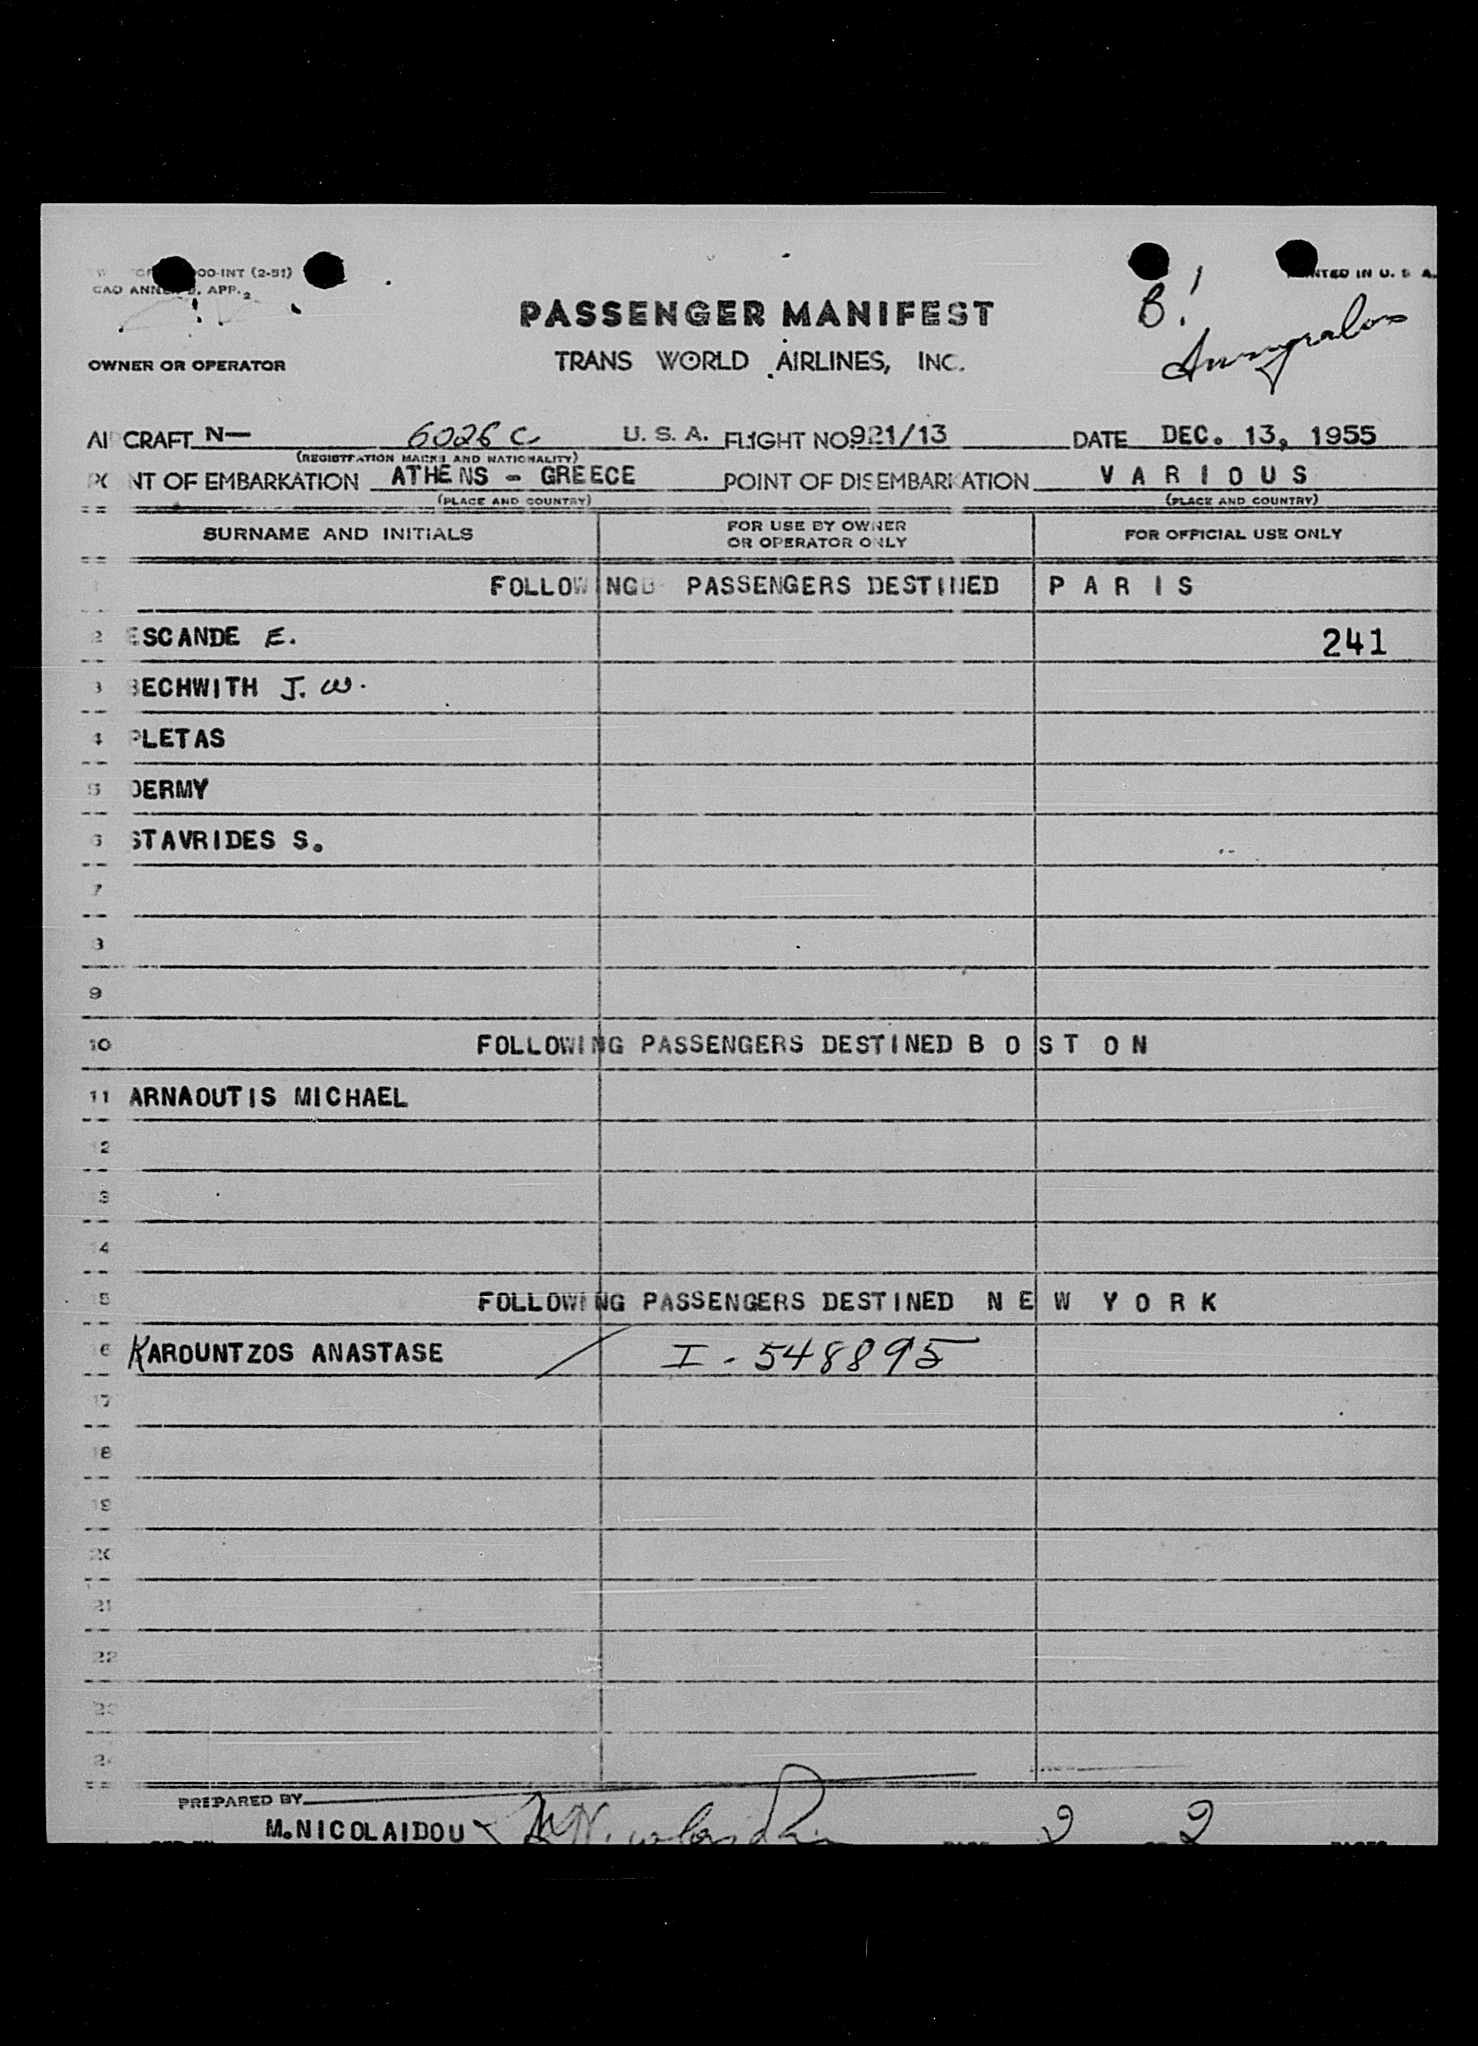 00-INT (2-51)
PRINTED IN U. S. A.
CAO ANNEX 9, APP. 2
B!
PASSENGER MANIFEST
OWNER OR OPERATOR
TRANS WORLD AIRLINES, INC.
AIRCRAFT N— 6026 C U. S. A. FLIGHT NO. 921/13 DATE DEC. 13, 1955
(REGISTRATION MARKS AND NATIONALITY)
POINT OF EMBARKATION ATHENS - GREECE POINT OF DISEMBARKATION V A R I O U S
(PLACE AND COUNTRY) (PLACE AND COUNTRY)
SURNAME AND INITIALS
FOR USE BY OWNER
OR OPERATOR ONLY
FOR OFFICIAL USE ONLY
FOLLOWING PASSENGERS DESTINED P A R I S
2 ESCANDE E. 241
3 BECHWITH J. W.
4 PLETAS
5 DERMY
6 STAVRIDES S.
7
8
9
10 FOLLOWING PASSENGERS DESTINED B O S T O N
11 ARNAOUTIS MICHAEL
12
13
14
15 FOLLOWING PASSENGERS DESTINED N E W Y O R K
16 KAROUNTZOS ANASTASE I - 548895
17
18
19
20
21
22
23
24
PREPARED BY
M.NICOLAIDOU
PAGE 2 OF 2 PAGES